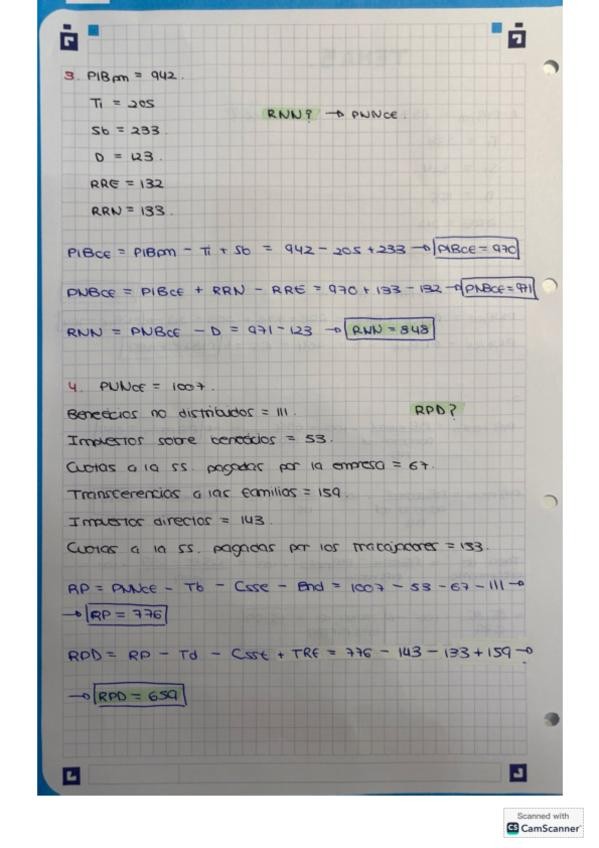 3. PIBpm = 942.
Ti = 205
RNN? → PNNce.
Sb = 233.
D = 123.
RRE = 132
RRN = 133.
PIBce = PIBpm - Ti + Sb = 942 - 205 + 233 → PIBce = 970
PNBce = PIBce + RRN - RRE = 970 + 133 - 132 → PNBce = 971
RNN = PNBce - D = 971 - 123 → RNN = 848
4. PNNce = 1007.
Beneficios no distribuidos = 111.
RPD?
Impuestos sobre beneficios = 53.
Cuotas a la SS. pagadas por la empresa = 67.
Transferencias a las familias = 159.
Impuestos directos = 143.
Cuotas a la SS. pagadas por los trabajadores = 133.
RP = PNNce - Tb - Csse - Bnd = 1007 - 53 - 67 - 111 →
→ RP = 776
RPD = RP - Td - Csst + TRF = 776 - 143 - 133 + 159 →
→ RPD = 659
Scanned with
CS CamScanner